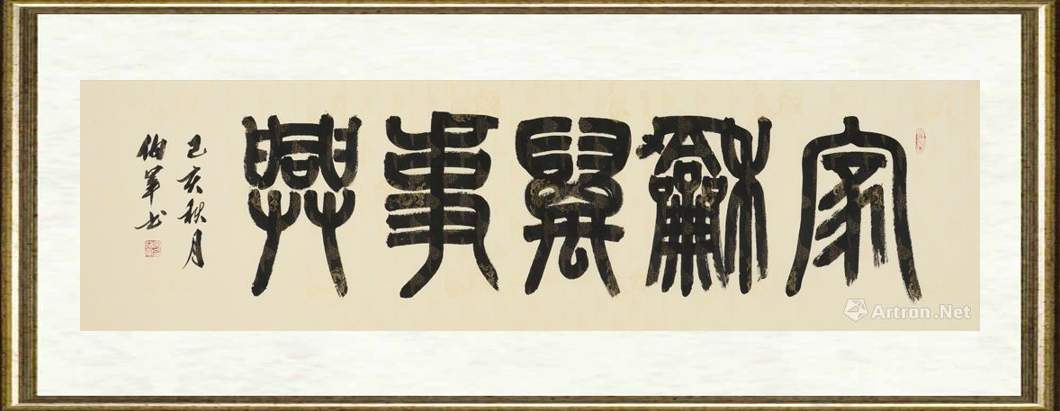 家龢萬事興
己亥秋月
伯軍书
Artron.Net